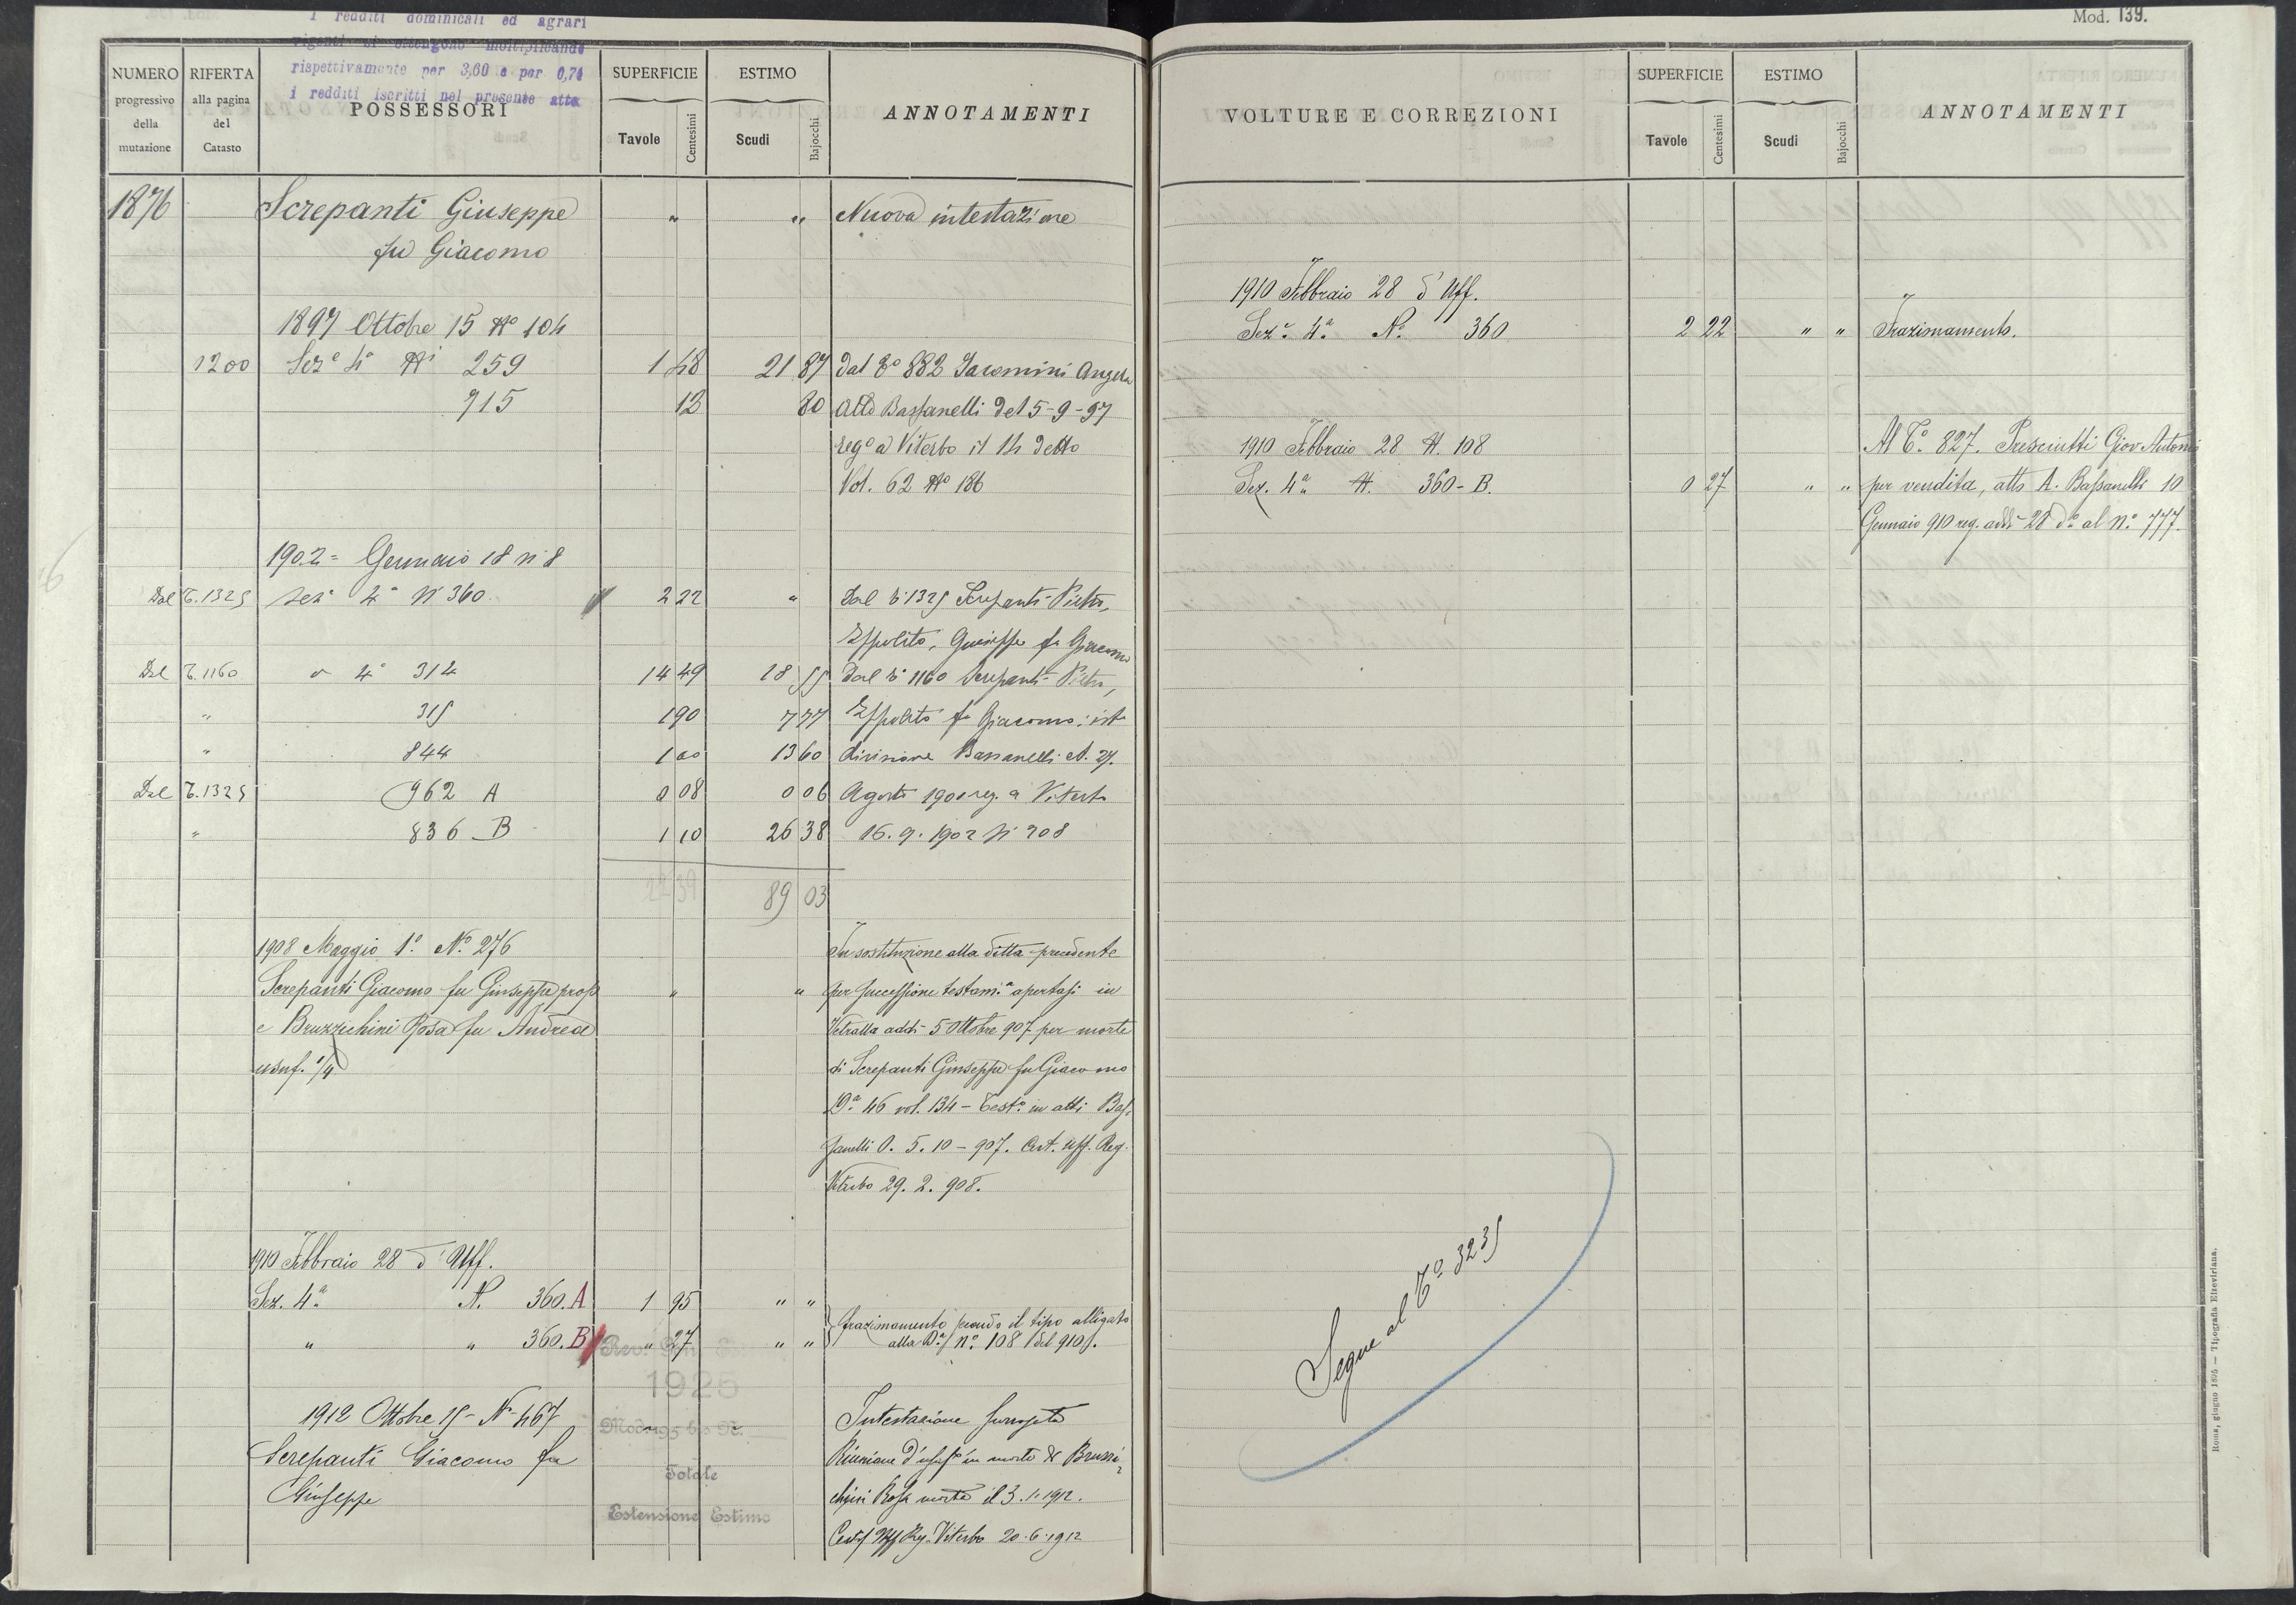 Mod. 139.
I redditi dominicali ed agrari
vigenti si ottengono moltiplicando
rispettivamente per 3,60 e per 0,74
i redditi iscritti nel presente atto
NUMERO progressivo della mutazione
RIFERTA alla pagina del Catasto
POSSESSORI
SUPERFICIE Tavole Centesimi
ESTIMO Scudi Bajocchi
ANNOTAMENTI
1876 Screpanti Giuseppe " " Nuova intestazione
fu Giacomo
1897 Ottobre 15 No 104
1200 Seze 4a Ni 259 1 48 21 87 dal To 882 Jacomini Angela
715 12 80 Atto Bassanelli del 5-9-97
rego a Viterbo il 14 detto
Vol. 62 No 186
1902 = Gennaio 18 n. 8
Dal T. 1325 sez. 4a N 360 2 22 " Dal T. 1325 Screpanti Pietro,
Ippolito, Giuseppe fu Giacomo
Dal T. 1160 4a 314 14 49 18 55 Dal T. 1160 Screpanti Pietro,
" 315 1 90 7 77 Ippolito fu Giacomo: ist.
" 844 1 00 13 60 divisione Bassanelli A. 27.
Dal T. 1325 962 A 0 08 0 06 Agosto reg. a Viterbo
" 836 B 1 10 26 38 16. 9. 1902 N. 208
22 39 89 03
1908 Maggio 1o No 276 In sostituzione alla ditta precedente
Screpanti Giacomo fu Giuseppe prop " " per successione testam.a apertasi in
e Bruzzichini Rosa fu Andrea Vetralla addi 5 Ottobre 907 per morte
usuf. 1/4 di Screpanti Giuseppe fu Giacomo
Da 46 vol. 134 - Testo in atti Bas-
sanelli A. 5. 10 - 907. Cert. Uff. Reg.
Viterbo 29. 2. 908.
1910 Febbraio 28 d'Uff.
Sez. 4a N. 360. A 1 95 " "
" " 360. B " 27 " "
frazionamento secondo il tipo alligato
alla Da n.o 108 del 910.
1925
Totale
Estensione Estimo
1912 Ottobre 15 - No 467 Intestazione surrogata
Screpanti Giacomo fu Riunione d'usufo in morte di Bruzzi-
Giuseppe chini Rosa morta il 3. 1. 1912.
Certif Uff Reg. Viterbo 20. 6. 1912
VOLTURE E CORREZIONI
SUPERFICIE Tavole Centesimi
ESTIMO Scudi Bajocchi
ANNOTAMENTI
1910 Febbraio 28 d'Uff.
Seze 4a No 360 2 22 " " Frazionamento.
1910 Febbraio 28 N. 108 Al To. 827. Presciutti Giov. Antonio
Sez. 4a N. 360-B. 0 27 " " per vendita, atto A. Bassanelli 10
Gennaio 910 reg. addi 28 do al no 777.
Segue al To. 3235
Roma, giugno 1895 — Tipografia Elzeviriana.